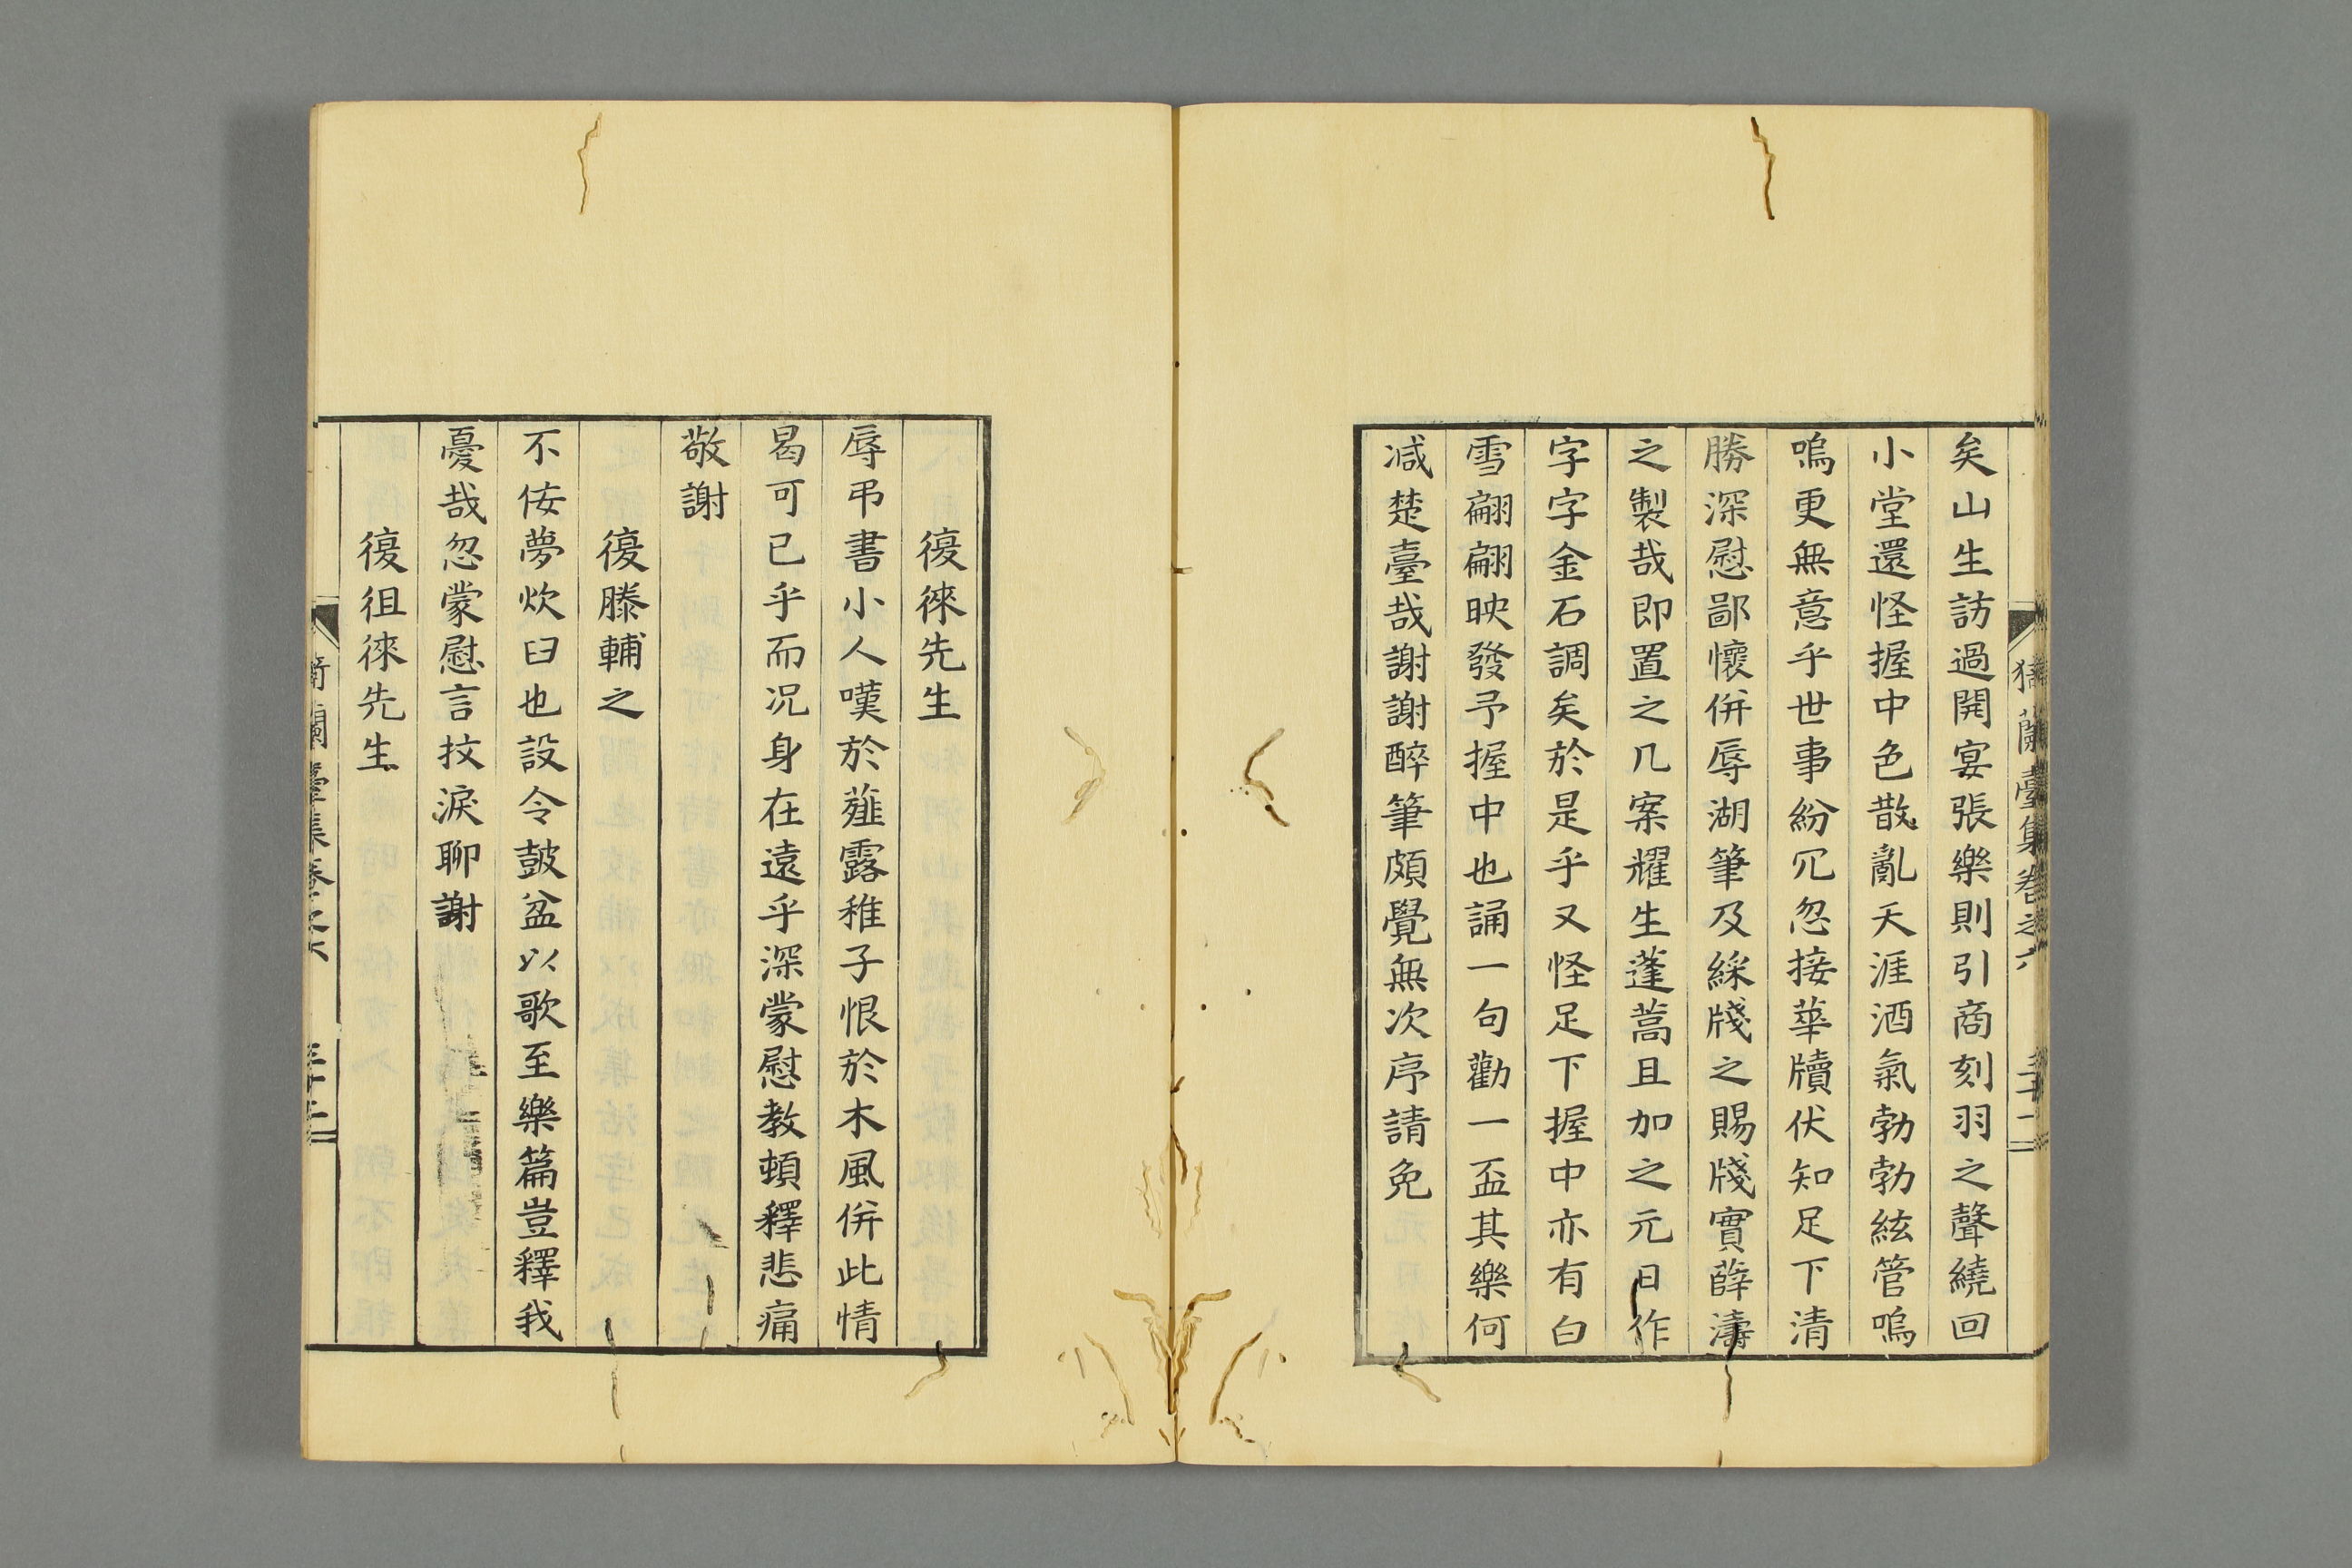 矣山生訪過開宴張樂則引商刻羽之聲繞回
小堂還怪握中色散亂天涯酒氣勃勃絃管嗚
嗚更無意乎世事紛冗忽接華牘伏知足下清
勝深慰鄙懷併辱湖筆及綵牋之賜牋實薛濤
之製哉即置之几案耀生蓬蒿且加之元日作
字字金石調矣於是乎又怪足下握中亦有白
雪翩翩映發予握中也誦一句勸一盃其樂何
减楚臺哉謝謝醉筆頗覺無次序請免
復徠先生
辱弔書小人嘆於薤露稚子恨於木風併此情
曷可已乎而况身在遠乎深蒙慰教頓釋悲痛
敬謝
復滕輔之
不侫夢炊臼也設令鼓盆以歌至樂篇豈釋我
憂哉忽蒙慰言抆淚聊謝
復徂徠先生